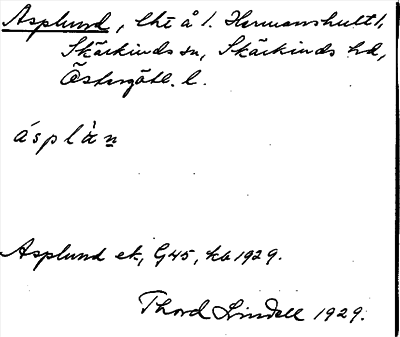 Asplund, lht å 1. Hermanshult 1,
Skärkinds sn, Skärkinds hd,
Östergötl. l.
ásplàn
Asplund ek, G45, hb 1929.
Thord Lindell 1929.